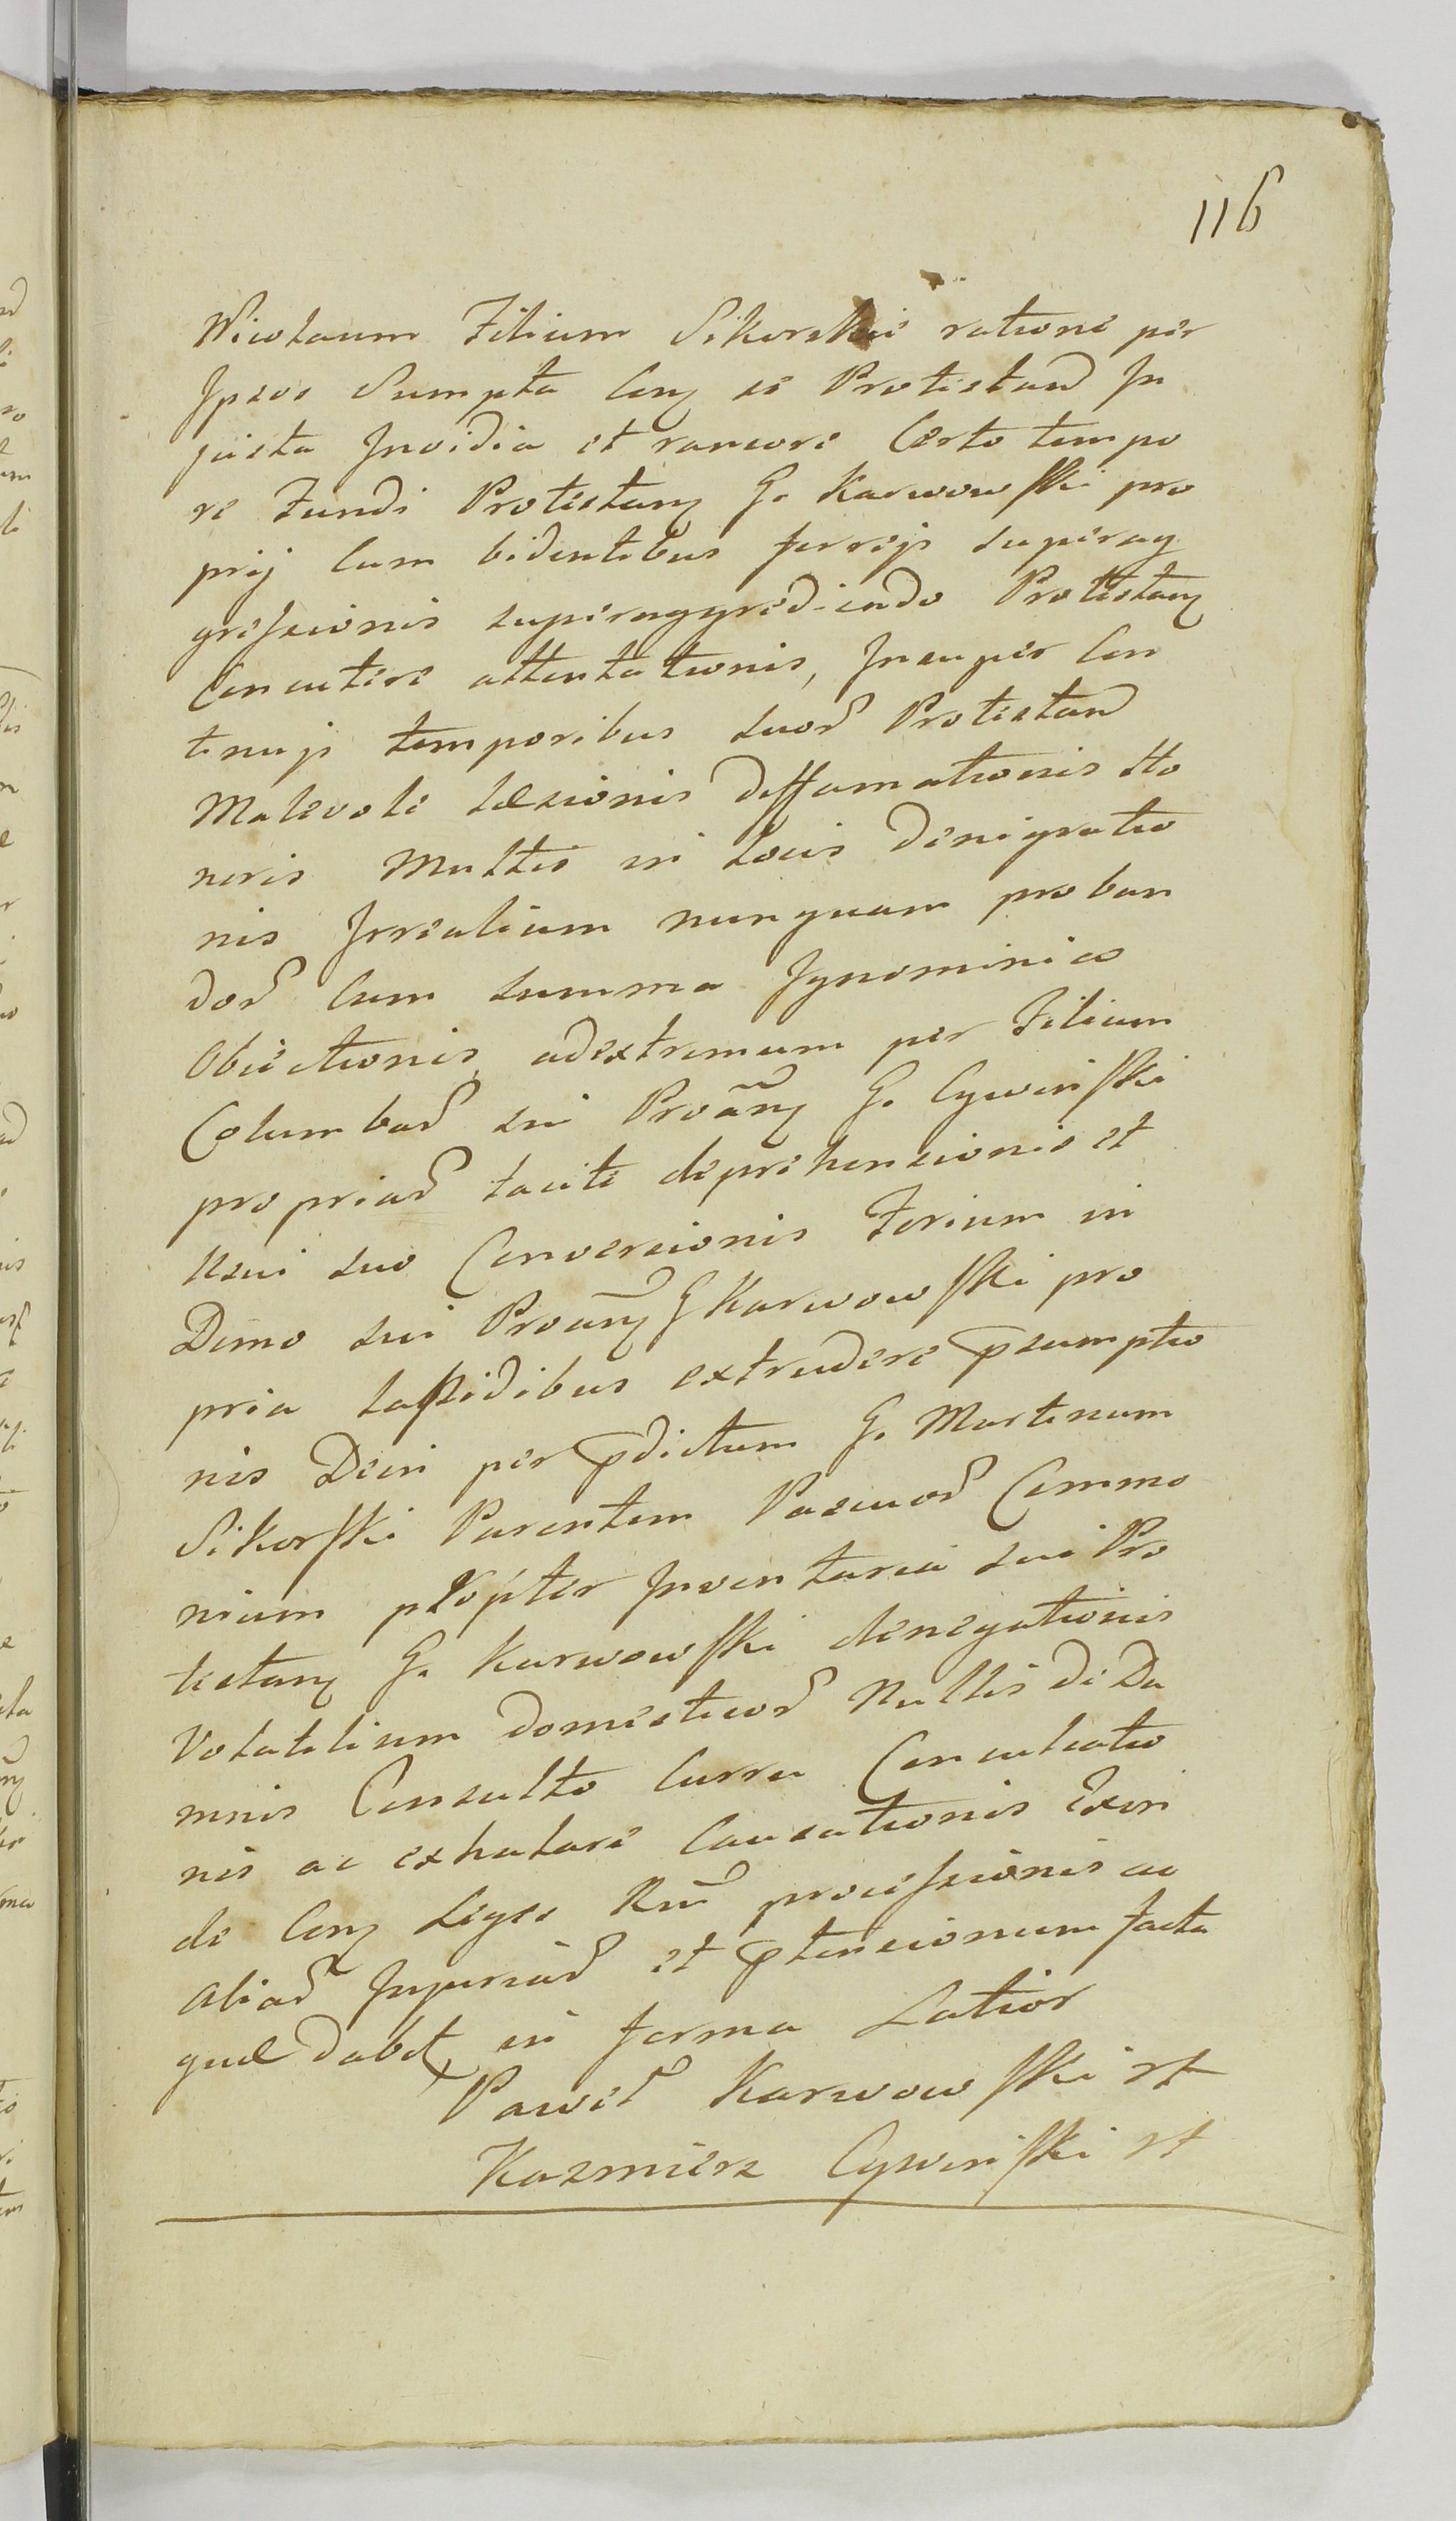 116
Nicolaum Filium Sikorskie ratione per
Ipsos Sumpta Conq̃ se Protestand In
justa Invidia et rancore Certo tempo
re Fundi Protestanq̃ G. Karwowski pro
prij Cum bidentibus ferrejs superag
gressionis superaggrediendo Protestanq̃
Concutere attentationis, Insuper Con
tinujs temporibus suor̃ Protestand
Malevole læsionis Diffamationis Ho
noris Multis in locis Denigratio
nis Irrealium nunquam proban
dor̃ Cum summa Ignominia
Obiectionis, adextremum per Filium
Columbar̃ sui Proãnq̃ G. Cywinski
propriar̃ tacite deprehensionis et
Usui suo Conversionis Forium in
Domo sui Proanq̃ G Karwowski pro
pria lapidibus extrudere p̃sumptio
nis Dein per p̃dictum G. Martinum
Sikorski Parentem Pascuor̃ Commo
nium propter Inventaria sui Pro
testanq̃ G. Karwowski denegationis
Volatilium domesticor̃ Nullis de Da
mnis Consulto Curru Conculcatio
nis ac exhalare Causationis Exin
de Conq̃ Leges Rñi processionis ac
aliar̃ Injuriar̃ et p̃tensionum facta
quæ dabit in forma Latior
Paweł Karwowski rf
Kazmierz Cywinski rf